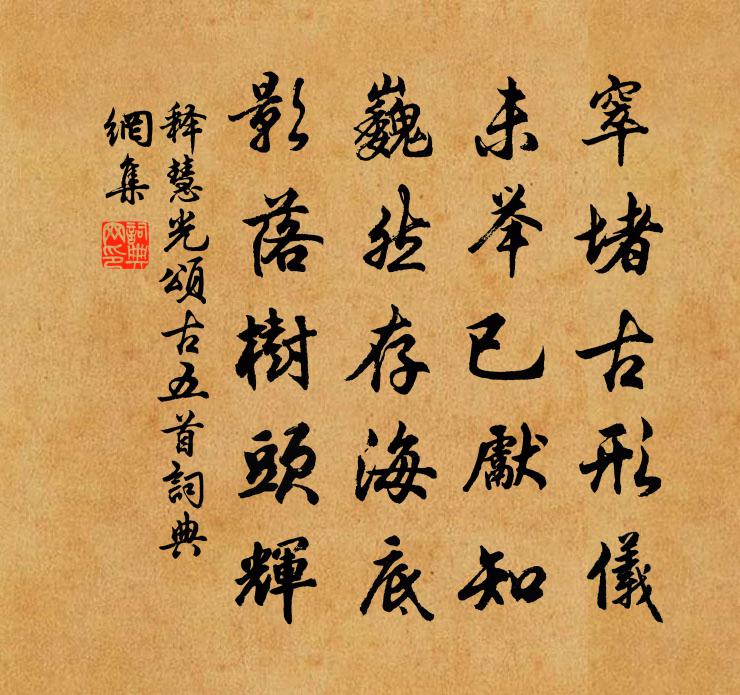 窣堵古形儀
未举已獻知
巍然存海底
影落樹頭輝
释慧光頌古五首詞典
網集
詞典網印